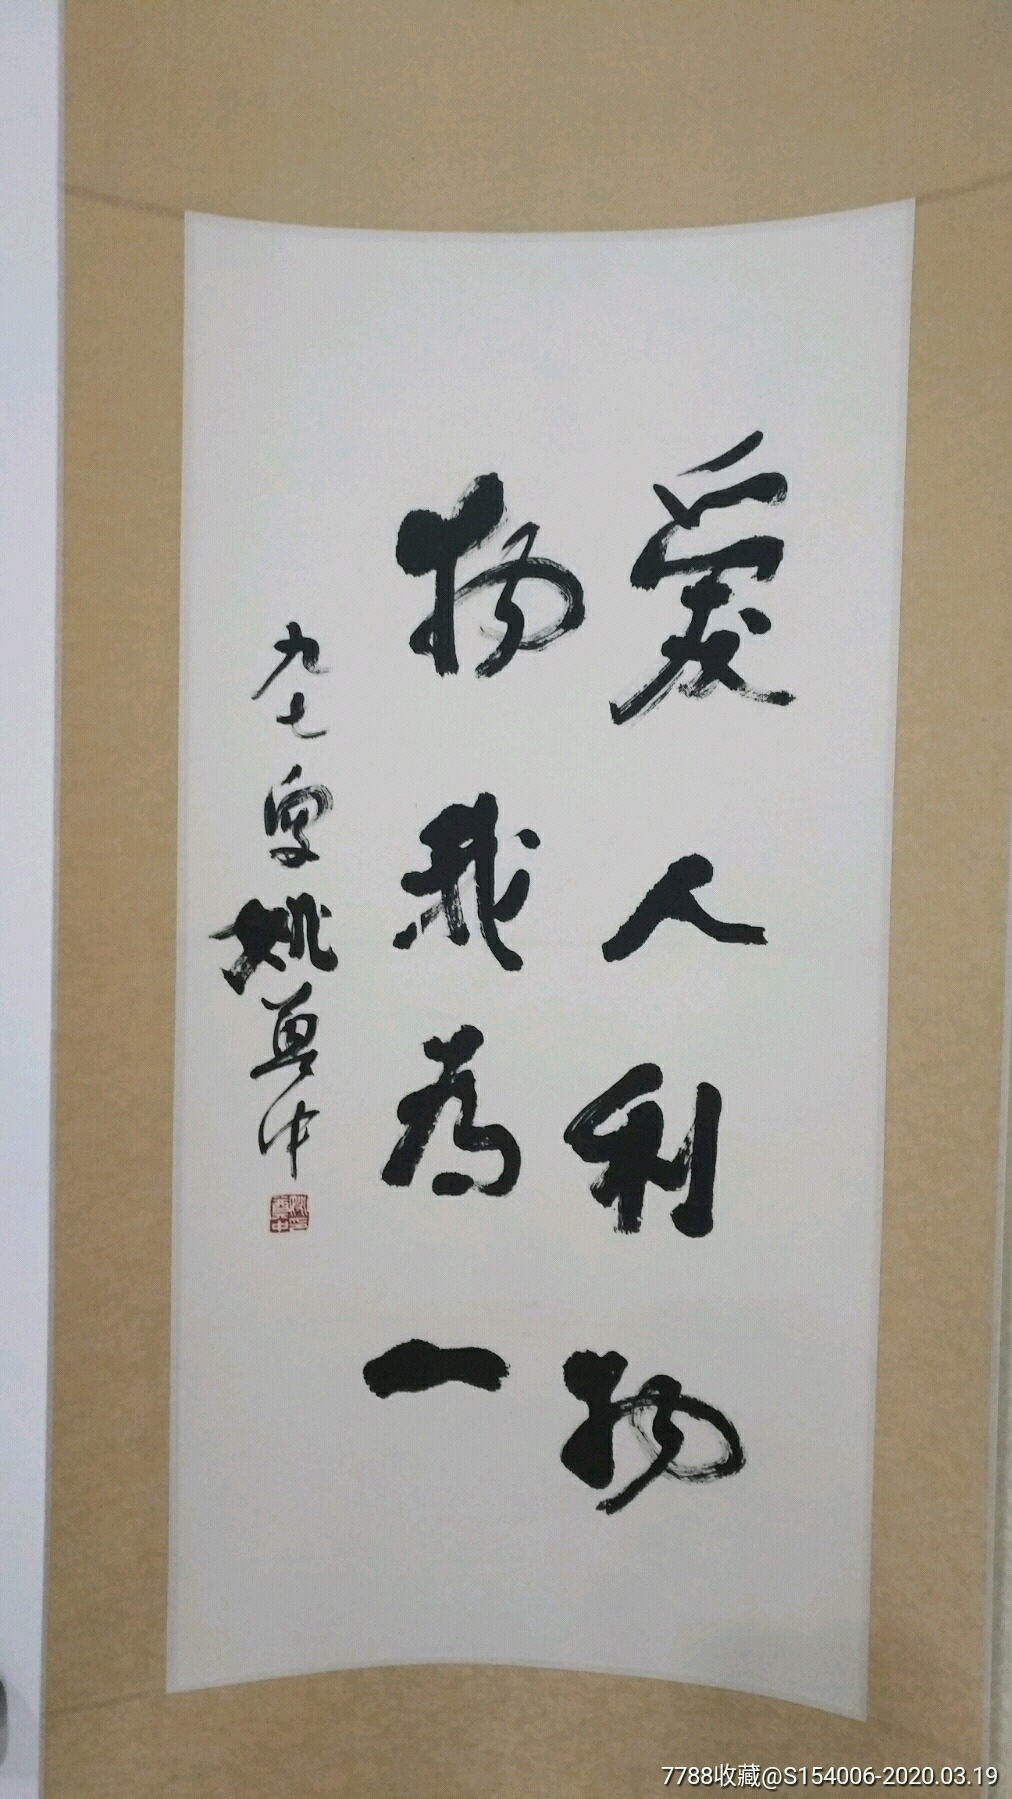 爱人利物
物我为一
九七叟姚奠中
姚奠中
7788收藏@S154006-2020.03.19